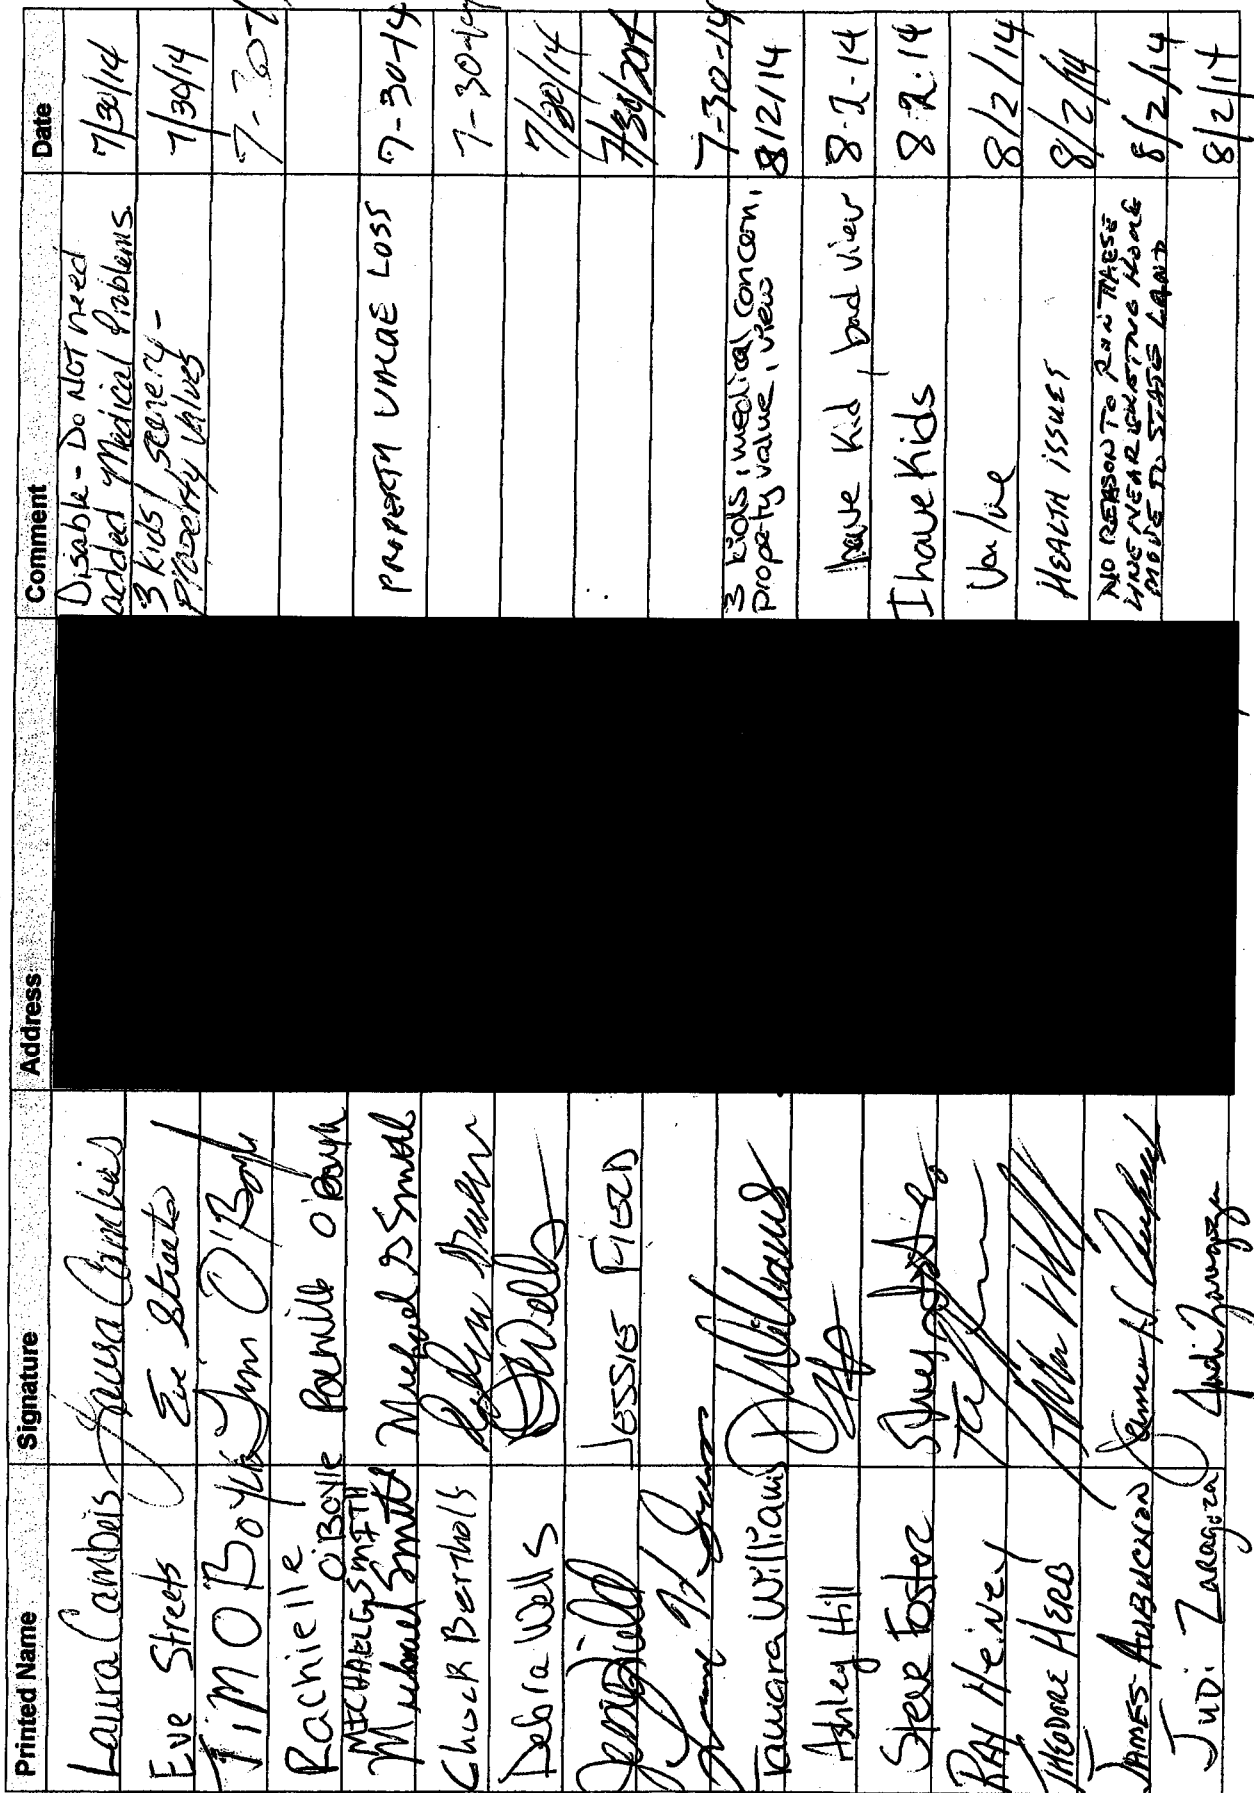 Printed Name Signature Address Comment Date
Laura Cambeis Laura Cambeis Disable - Do Not need 7/30/14
added Medical Problems.
Eve Streets Eve Streets 3 kids, scenery - 7/30/14
Property Values
Tim O Boyle Tim O'Boyle 7-30-1
Rachielle
O'Boyle O'Boyle
MICHAEL G SMITH
Michael Smith Michael G Smith PROPERTY VALUE LOSS 7-30-14
Chuck Bertholf 7-30-14
Debra Wells Wells 7/30/14
JESSIE FIELD 7/30/2014
7-30-14
Tamara Williams Williams 3 kids, medical concern, 8/2/14
property value, view
Ashley Hill have kid, bad view 8-2-14
Steve Foster I have Kids 8.2.14
RAY Heiney Value 8/2/14
THEODORE HERB HEALTH ISSUES 8/2/14
JAMES AUBUCHON NO REASON TO RUN THESE 8/2/14
LINE NEAR EXISTING HOME
MOVE TO STATE LAND
JUDI ZARAGOZA Judi Zaragoza 8/2/14